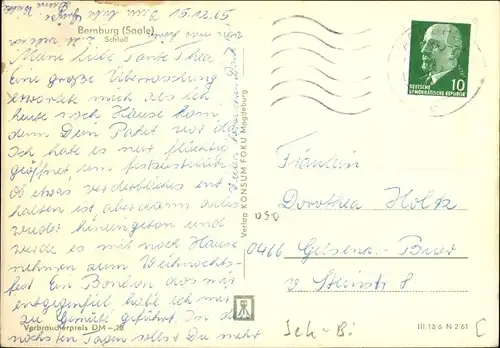 15.12.65
Bernburg (Saale)
Schloß
Meine liebe Tante Thea
Eine große Überraschung
erwartete mich als ich
heute nach Hause kam,
denn Dein Paket war da.
Ich habe es nur flüchtig
geöffnet um festzustellen
ob etwas verderbliches ent
halten ist aber dann alles
wieder hineingetan und
werde es mit nach Hause
nehmen zum Weihnachts
fest. Ein Bonbon das mir
entgegenfiel habe ich mir
zu Gemüte geführt. In den
nächsten Tagen sollst Du mehr
Verbraucherpreis DM -,20
Verlag KONSUM FOKU Magdeburg
10
DEUTSCHE
DEMOKRATISCHE REPUBLIK
Fräulein
Dorothea Holtz
0466 Gelsenk.-Buer
v. Steinstr 8
Sch-Bi
III 18 6 N 2 61